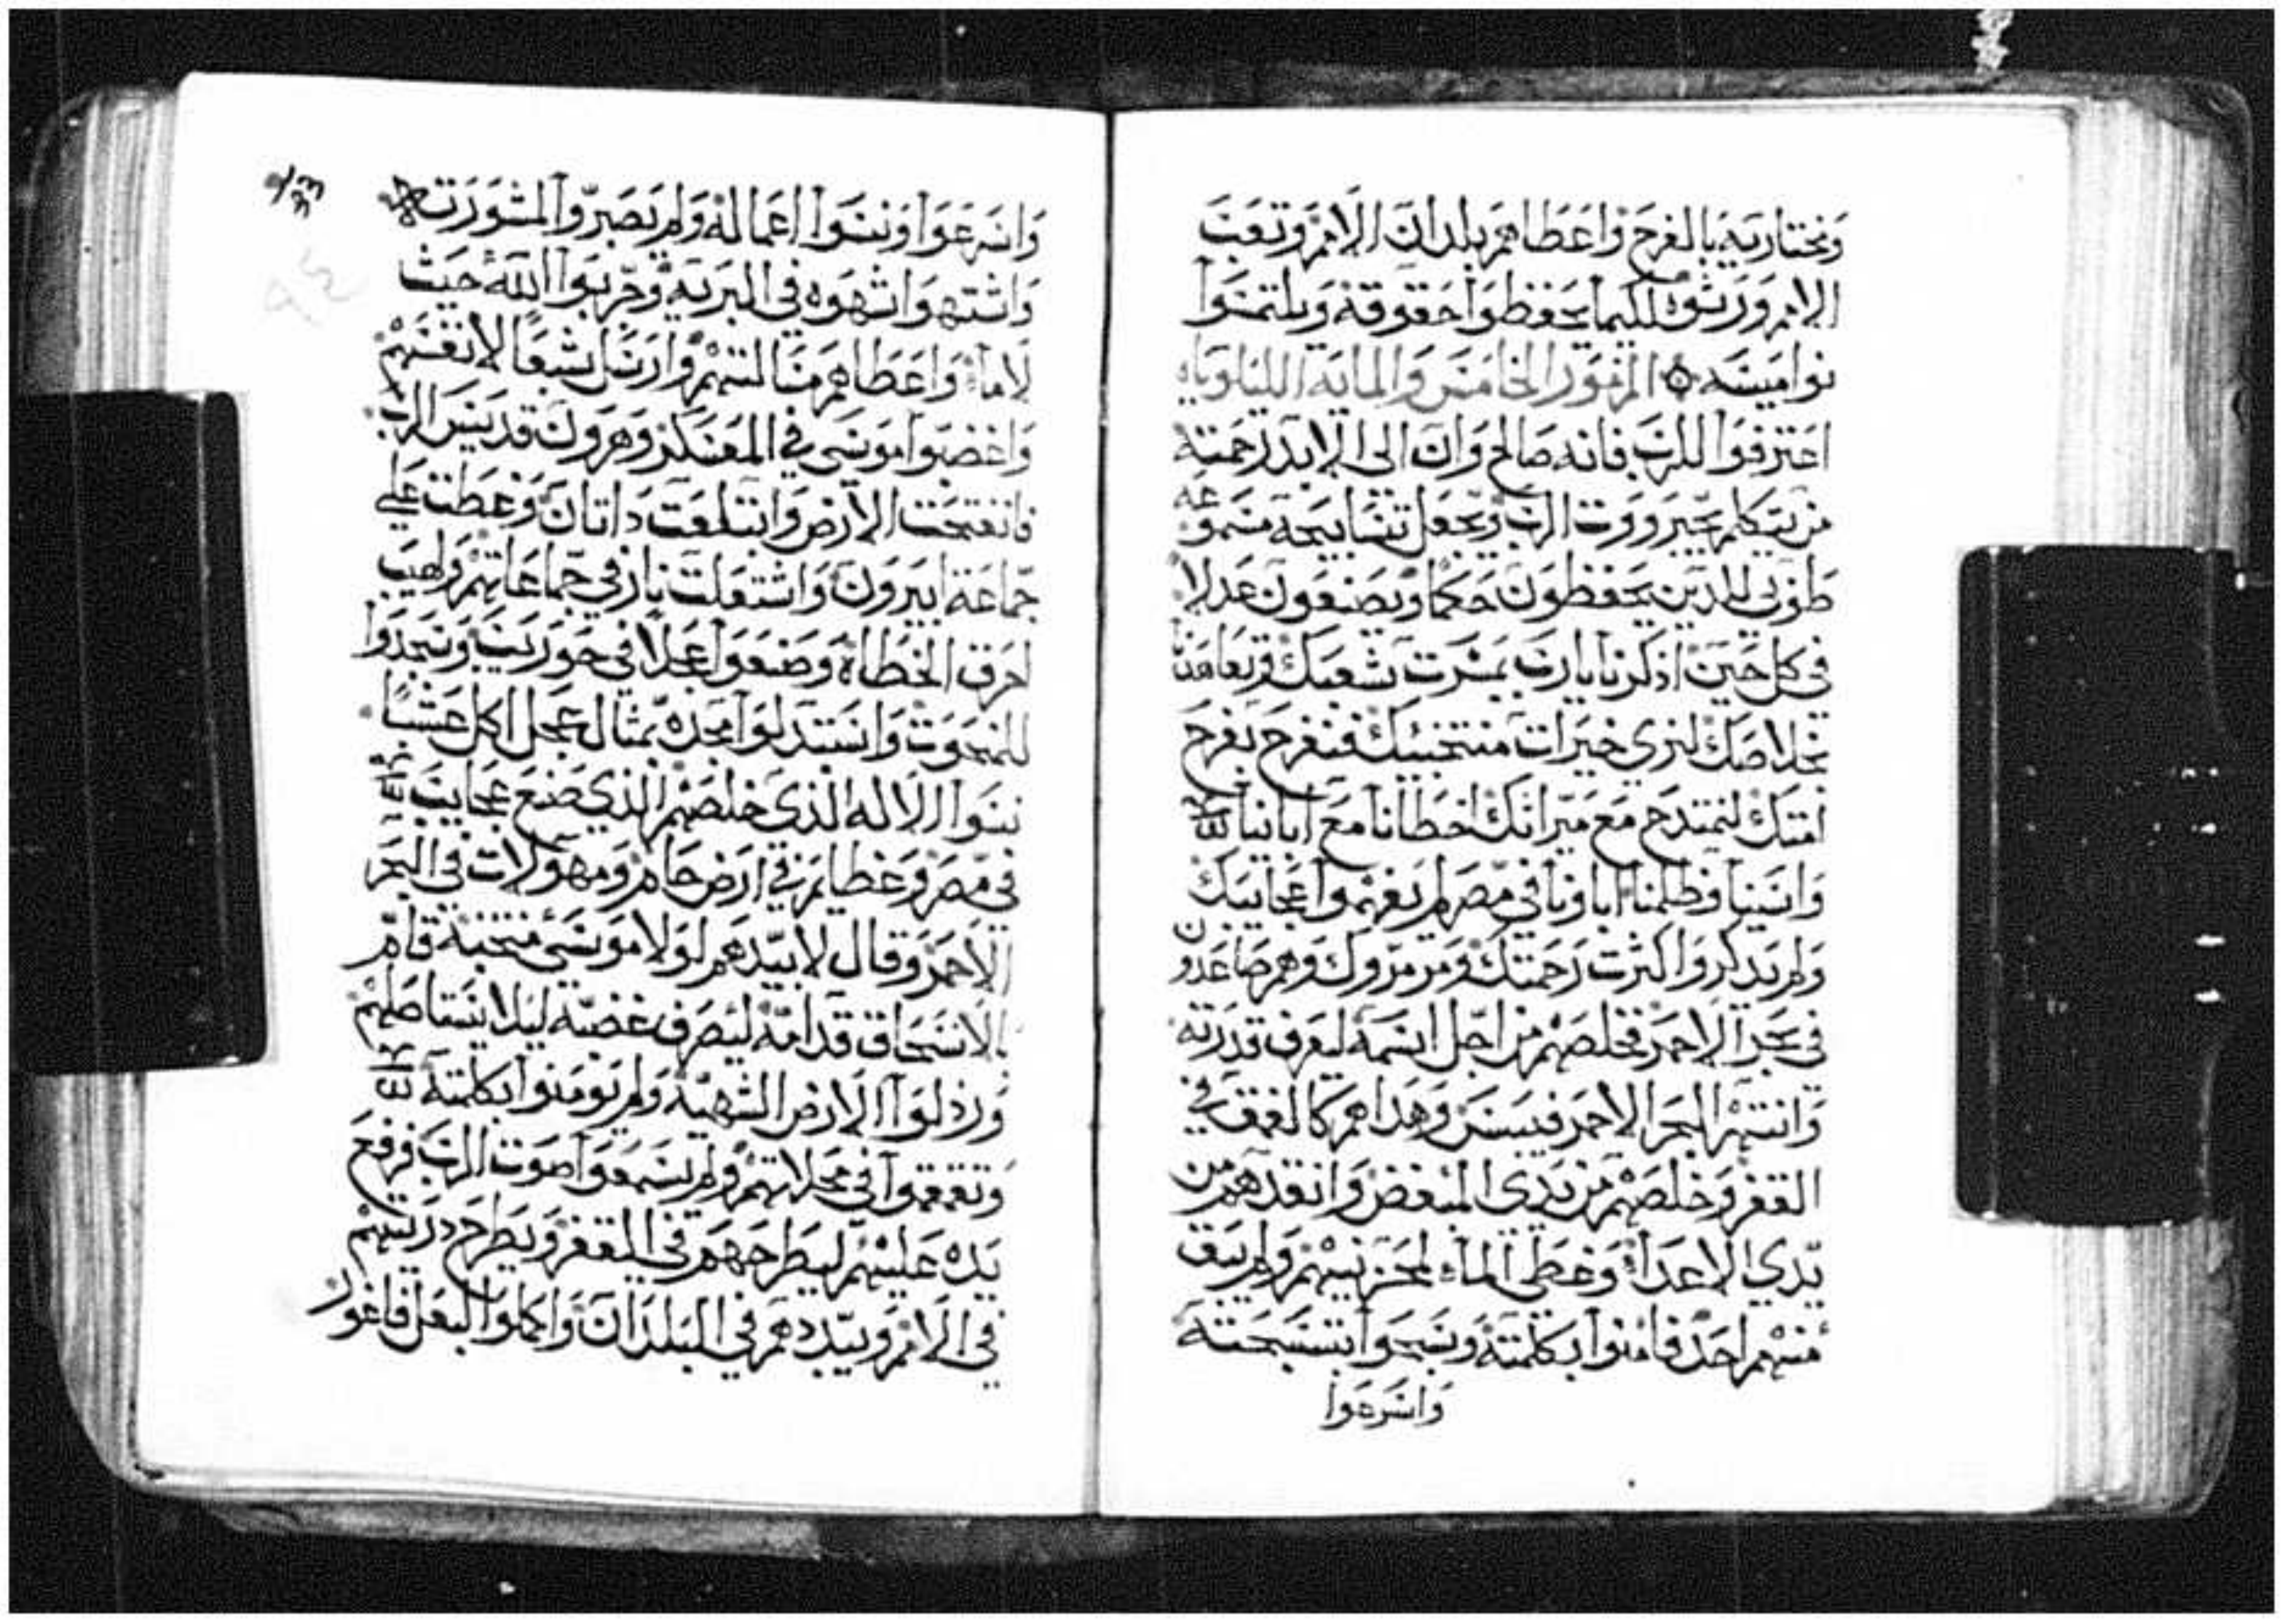 ومختاريه بالفرح واعطاهم بلدان الامم وتعب
الامم ورثوه لكيما يحفظوا حقوقه ويلتمسوا
نواميسه ۞ المزمور الخامس والمايه الليلوياه
اعترفوا للرب فانه صالح وان الى الابد رحمته
من يتكلم بجبرووت الرب ويجعل تسابيحه مسموعه
طوبى للذين يحفظون حكما ويصنعون عدلا
في كل حين اذكرنا يارب بمسرت شعبك وتعاهدنا
بخلاصك لنرى خيرات منتخبيك فنفرح بفرح
امتك لنمتدح مع ميراثك اخطانا مع ابائنا
واسينا وظلمنا اباونا في مصر لم يفهموا عجايبك
ولم يذكروا كثرت رحمتك ومرمروك وهم صاعدون
في بحر الاحمر فخلصهم من اجل اسمه ليعرف قدرته
وانتهر البحر الاحمر فيبس وهداهم كالعمق في
القفر وخلصهم من يدى المبغض وانقذهم من
يدي الاعداء وغطى الماء لمحزنيهم ولم يبق
منهم احد فامنوا بكلمته وسبحوا بتسبحته
واسرعوا
33
واسرعوا ونسوا اعماله ولم يصبروا لمشورته
واشتهوا شهوه في البريه وجربوا الله حيث
لا ماء واعطاهم مسالتهم وارسل شبعا لانفسهم
واغضبوا موسى في المعسكر وهرون قديس الرب
فانفتحت الارض وابتلعت داتان وغطت على
جماعة ابيرون واشتعلت نار في جماعاتهم ولهيب
احرق الخطاه وصنعوا عجلا في حوريب وسجدوا
للمنحوت واستبدلوا مجده بمثال عجل اكل عشبا
نسوا الاله الذى خلصهم الذي صنع عجايب
في مصر وعظايم في ارض حام ومهولات في البحر
الاحمر وقال لابيدهم لولا موسى منتخبه قام
بالانسحاق قدامه ليصرف غضبه ليلا يستاصلهم
ورذلوا الارض الشهيه ولم يومنوا بكلمته
وتقمقموا في محلاتهم ولم يسمعوا صوت الرب فرفع
يده عليهم ليطرحهم في القفر ويطرح ذريتهم
في الامم ويبددهم في البلدان واكملوا لبعل فاغور